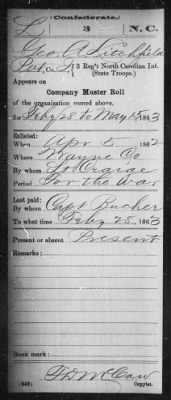 (Confederate.)
L 3 N.C.
Geo. A. Litchfield
Pvt, Co. , 3 Reg't North Carolina Inf.
(State Troops.)
Appears on
Company Muster Roll
of the organization named above,
for Feby 28 to May 15, 1863
Enlisted:
When Apr 5, 1862
Where Wayne Co
By whom Lt Craige
Period For the War
Last paid:
By whom Capt Bucher
To what time Feby 28, 1863
Present or absent Present
Remarks:
Book mark:
(642) T D McCaw
Copyist.